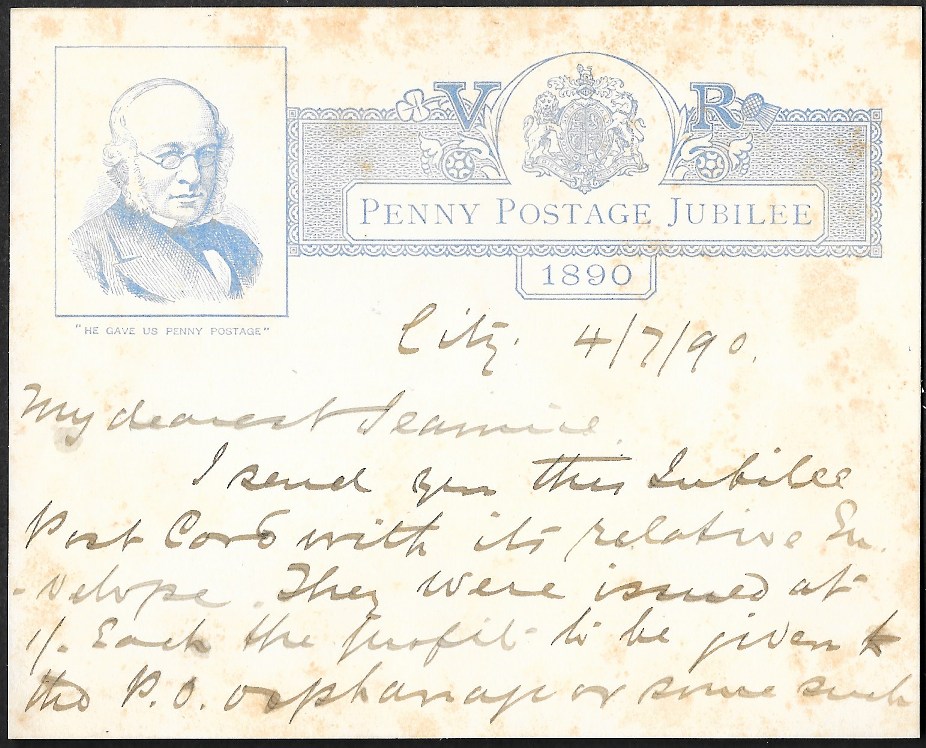 V R
PENNY POSTAGE JUBILEE
1890
"HE GAVE US PENNY POSTAGE"
City. 4/7/90.
My dearest Jeannie
I send you this Jubilee
Post Card with its relative En
-velope. They were issued at
1/. Each the profit to be given to
the P.O. orphanage or some such